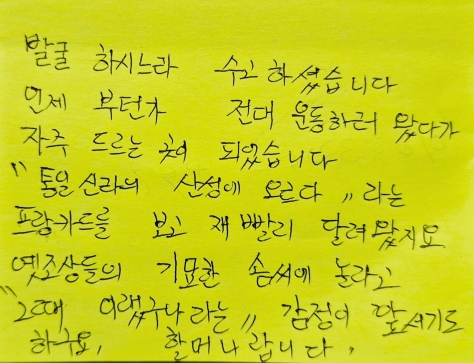 발굴 하시느라 수고 하셨습니다
언제 부턴가 전대 운동하러 왔다가
자주 드르는 곳이 되었습니다
"통일신라의 산성에 오르다" 라는
프랑카드를 보고 재빨리 달려왔지요
옛조상들의 기묘한 솜씨에 놀라고
"그때 이랬구나 라는" 감정이 앞서기도
하구요, 할머니랍니다.